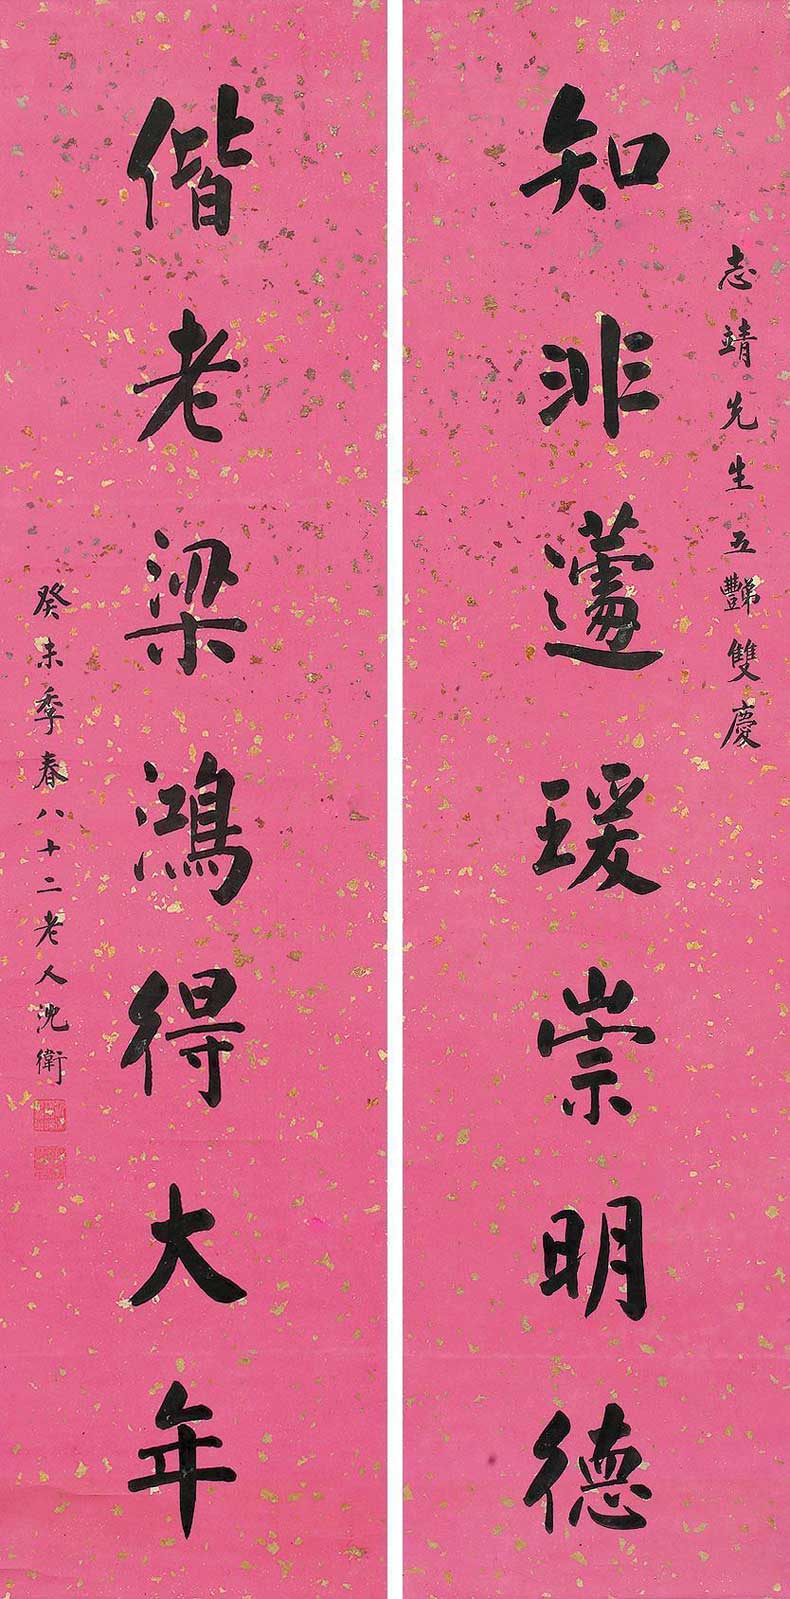 志靖先生五豑雙慶
知非蘧瑗崇明德
偕老梁鴻得大年
癸未季春八十二老人沈衛